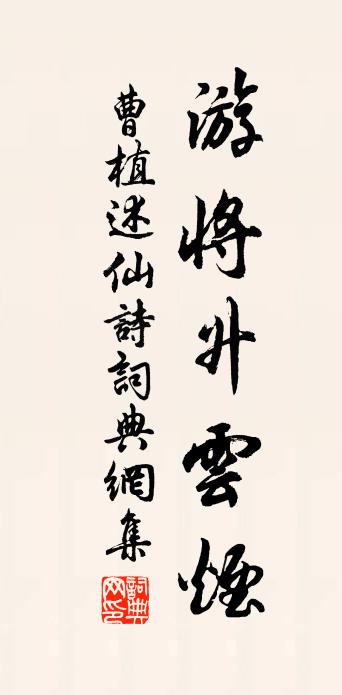 游將升雲煙
曹植述仙詩詞典網集
詞典網印